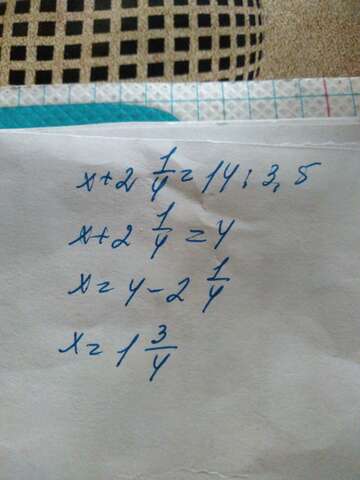 x+2 1/4 = 14 : 3,5
x+2 1/4 = 4
x = 4 - 2 1/4
x = 1 3/4